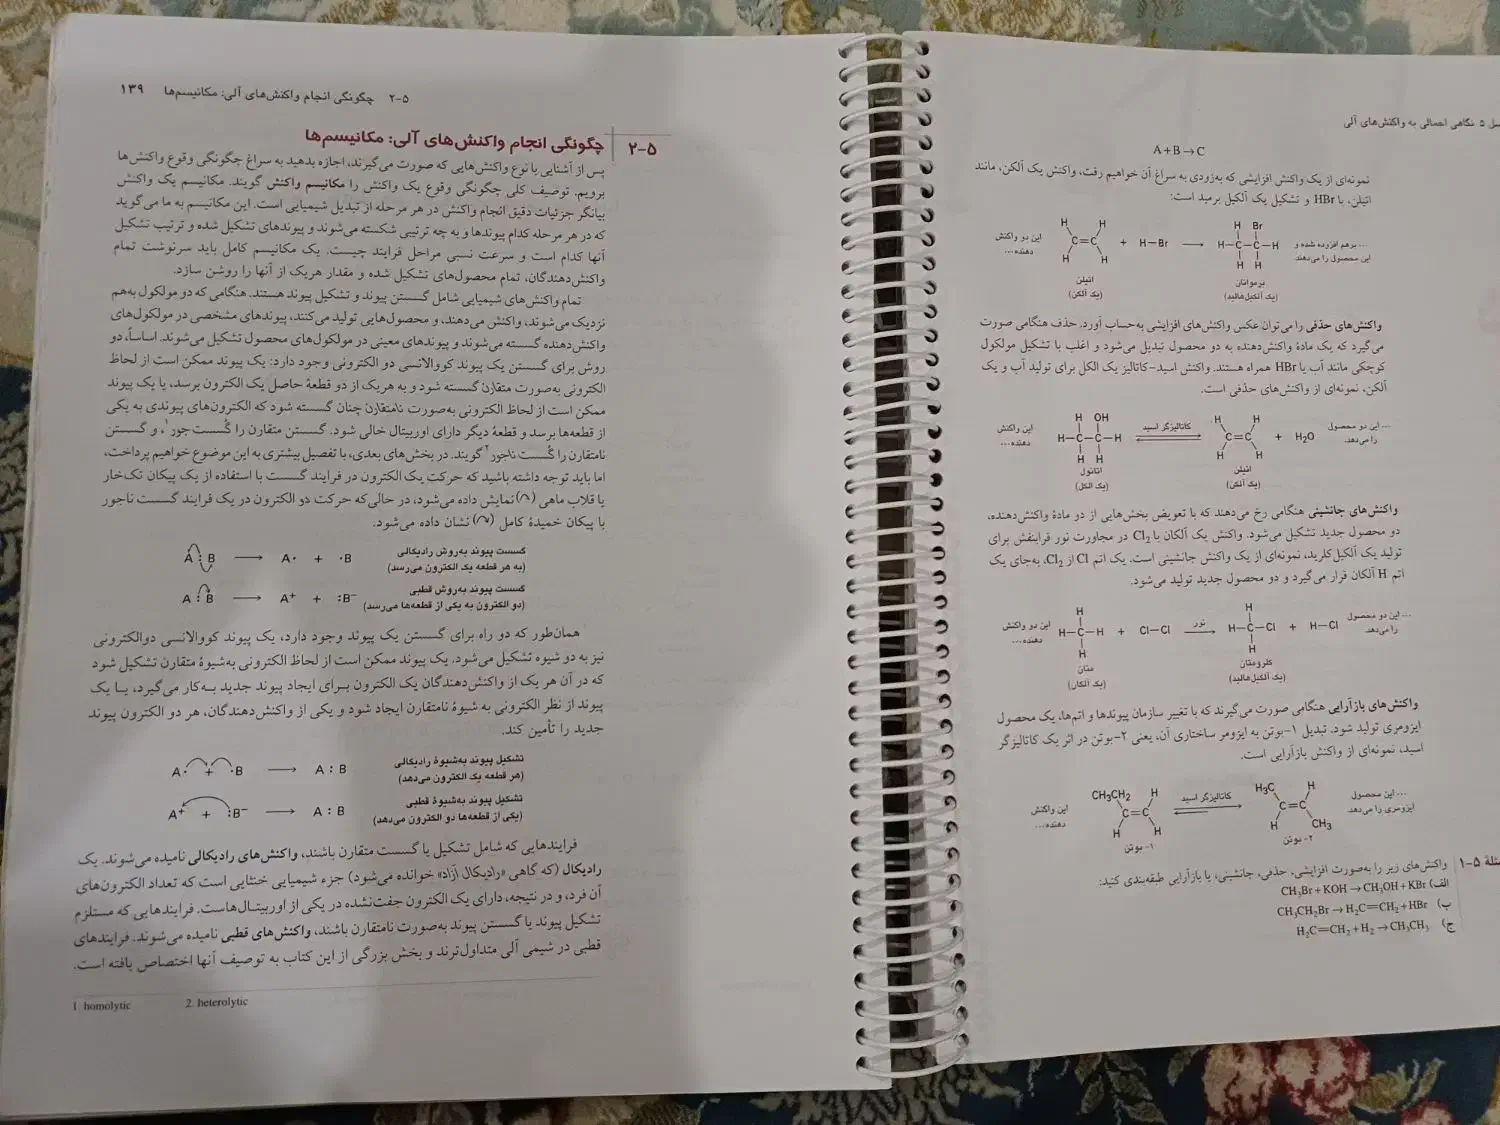 سل ۵ نگاهی اجمالی به واکنش‌های آلی
A + B → C
نمونه‌ای از یک واکنش افزایشی که به‌زودی به سراغ آن خواهیم رفت، واکنش یک آلکن، مانند
اتیلن، با HBr و تشکیل یک آلکیل برمید است:
این دو واکنش
دهنده...
H H
C=C + H—Br → H—C—C—H
H Br
H H
... برهم افزوده شده و
این محصول را می‌دهند.
اتیلن
(یک آلکن)
برمواتان
(یک آلکیل‌هالید)
واکنش‌های حذفی را می‌توان عکس واکنش‌های افزایشی به‌حساب آورد. حذف هنگامی صورت
می‌گیرد که یک مادهٔ واکنش‌دهنده به دو محصول تبدیل می‌شود و اغلب با تشکیل مولکول
کوچکی مانند آب یا HBr همراه هستند. واکنش اسید-کاتالیز یک الکل برای تولید آب و یک
آلکن، نمونه‌ای از واکنش‌های حذفی است.
این واکنش
دهنده...
H OH
H—C—C—H
H H
کاتالیزگر اسید
H H
C=C + H₂O
H H
... این دو محصول
را می‌دهد.
اتانول
(یک الکل)
اتیلن
(یک آلکن)
واکنش‌های جانشینی هنگامی رخ می‌دهند که با تعویض بخش‌هایی از دو مادهٔ واکنش‌دهنده،
دو محصول جدید تشکیل می‌شود. واکنش یک آلکان با Cl₂ در مجاورت نور فرابنفش برای
تولید یک آلکیل‌کلرید، نمونه‌ای از یک واکنش جانشینی است. یک اتم Cl از Cl₂، به‌جای یک
اتم H آلکان قرار می‌گیرد و دو محصول جدید تولید می‌شود.
این دو واکنش
دهنده...
H
H—C—H + Cl—Cl
H
نور
H
H—C—Cl + H—Cl
H
... این دو محصول
را می‌دهد.
متان
(یک آلکان)
کلرومتان
(یک آلکیل‌هالید)
واکنش‌های بازآرایی هنگامی صورت می‌گیرند که با تغییر سازمان پیوندها و اتم‌ها، یک محصول
ایزومری تولید شود. تبدیل ۱-بوتن به ایزومر ساختاری آن، یعنی ۲-بوتن در اثر یک کاتالیزگر
اسید، نمونه‌ای از واکنش بازآرایی است.
این واکنش
دهنده...
CH₃CH₂ H
C=C
H H
کاتالیزگر اسید
H₃C H
C=C
H CH₃
... این محصول
ایزومری را می‌دهد.
۱- بوتن
۲- بوتن
مثلهٔ ۵-۱ واکنش‌های زیر را به‌صورت افزایشی، حذفی، جانشینی، یا بازآرایی طبقه‌بندی کنید:
الف) CH₃Br + KOH → CH₃OH + KBr
ب) CH₃CH₂Br → H₂C=CH₂ + HBr
ج) H₂C=CH₂ + H₂ → CH₃CH₃
۲-۵ چگونگی انجام واکنش‌های آلی: مکانیسم‌ها ۱۳۹
۲-۵ چگونگی انجام واکنش‌های آلی: مکانیسم‌ها
پس از آشنایی با نوع واکنش‌هایی که صورت می‌گیرند، اجازه بدهید به سراغ چگونگی وقوع واکنش‌ها
برویم. توصیف کلی چگونگی وقوع یک واکنش را مکانیسم واکنش گویند. مکانیسم یک واکنش
بیانگر جزئیات دقیق انجام واکنش در هر مرحله از تبدیل شیمیایی است. این مکانیسم به ما می‌گوید
که در هر مرحله کدام پیوندها و به چه ترتیبی شکسته می‌شوند و پیوندهای تشکیل شده و ترتیب تشکیل
آنها کدام است و سرعت نسبی مراحل فرایند چیست. یک مکانیسم کامل باید سرنوشت تمام
واکنش‌دهندگان، تمام محصول‌های تشکیل شده و مقدار هریک از آنها را روشن سازد.
تمام واکنش‌های شیمیایی شامل گسستن پیوند و تشکیل پیوند هستند. هنگامی که دو مولکول به‌هم
نزدیک می‌شوند، واکنش می‌دهند، و محصول‌هایی تولید می‌کنند، پیوندهای مشخصی در مولکول‌های
واکنش‌دهنده گسسته می‌شوند و پیوندهای معینی در مولکول‌های محصول تشکیل می‌شوند. اساساً، دو
روش برای گسستن یک پیوند کووالانسی دو الکترونی وجود دارد: یک پیوند ممکن است از لحاظ
الکترونی به‌صورت متقارن گسسته شود و به هریک از دو قطعهٔ حاصل یک الکترون برسد، یا یک پیوند
ممکن است از لحاظ الکترونی به‌صورت نامتقارن چنان گسسته شود که الکترون‌های پیوندی به یکی
از قطعه‌ها برسد و قطعهٔ دیگر دارای اوربیتال خالی شود. گسستن متقارن را گُسست جور¹، و گسستن
نامتقارن را گُسست ناجور² گویند. در بخش‌های بعدی، با تفصیل بیشتری به این موضوع خواهیم پرداخت،
اما باید توجه داشته باشید که حرکت یک الکترون در فرایند گسست با استفاده از یک پیکان تک‌خار
یا قلاب ماهی (⌒) نمایش داده می‌شود، در حالی‌که حرکت دو الکترون در یک فرایند گسست ناجور
با پیکان خمیدهٔ کامل (↷) نشان داده می‌شود.
A : B → A· + ·B
گسست پیوند به‌روش رادیکالی
(به هر قطعه یک الکترون می‌رسد)
A : B → A⁺ + :B⁻
گسست پیوند به‌روش قطبی
(دو الکترون به یکی از قطعه‌ها می‌رسد)
همان‌طور که دو راه برای گسستن یک پیوند وجود دارد، یک پیوند کووالانسی دوالکترونی
نیز به دو شیوه تشکیل می‌شود. یک پیوند ممکن است از لحاظ الکترونی به‌شیوهٔ متقارن تشکیل شود
که در آن هر یک از واکنش‌دهندگان یک الکترون برای ایجاد پیوند جدید به‌کار می‌گیرد، یا یک
پیوند از نظر الکترونی به شیوهٔ نامتقارن ایجاد شود و یکی از واکنش‌دهندگان، هر دو الکترون پیوند
جدید را تأمین کند.
A· + ·B → A : B
تشکیل پیوند به‌شیوهٔ رادیکالی
(هر قطعه یک الکترون می‌دهد)
A⁺ + :B⁻ → A : B
تشکیل پیوند به‌شیوهٔ قطبی
(یکی از قطعه‌ها دو الکترون می‌دهد)
فرایندهایی که شامل تشکیل یا گسست متقارن باشند، واکنش‌های رادیکالی نامیده می‌شوند. یک
رادیکال (که گاهی «رادیکال آزاد» خوانده می‌شود) جزء شیمیایی خنثایی است که تعداد الکترون‌های
آن فرد، و در نتیجه، دارای یک الکترون جفت‌نشده در یکی از اوربیتال‌هاست. فرایندهایی که مستلزم
تشکیل پیوند یا گسستن پیوند به‌صورت نامتقارن باشند، واکنش‌های قطبی نامیده می‌شوند. فرایندهای
قطبی در شیمی آلی متداول‌ترند و بخش بزرگی از این کتاب به توصیف آنها اختصاص یافته است.
1 homolytic 2. heterolytic